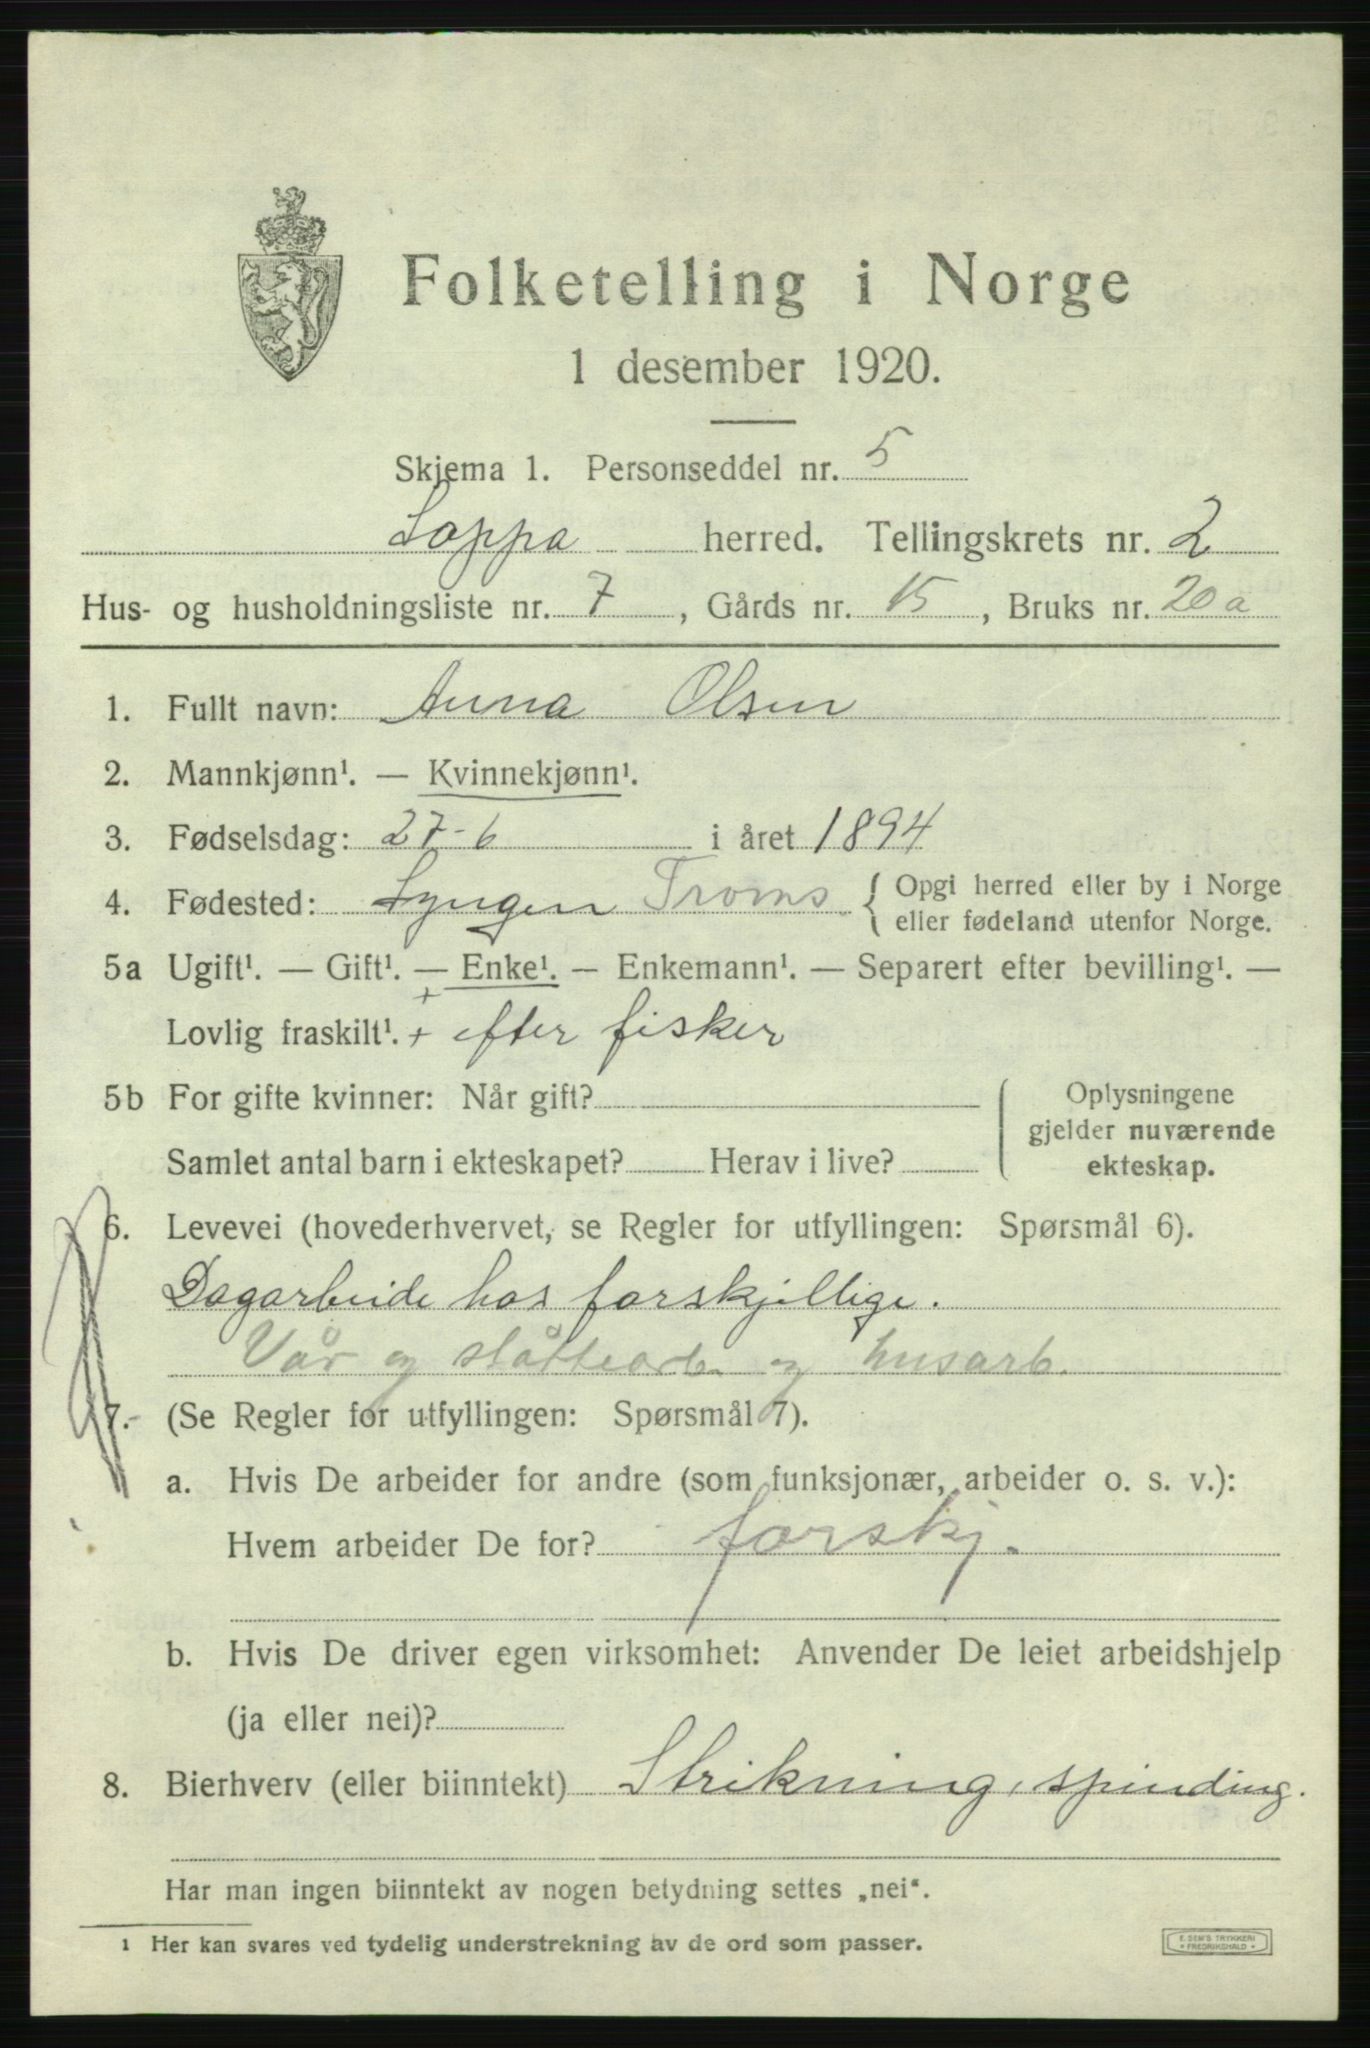 Folketelling i Norge
1 desember 1920.
Skjema 1. Personseddel nr. 5
Loppa herred. Tellingskrets nr. 2
Hus- og husholdningsliste nr. 7, Gårds nr. 15, Bruks nr. 20 a
1. Fullt navn: Anna Olsen
2. Mannkjønn¹. — Kvinnekjønn¹.
3. Fødselsdag: 27-6 i året 1894
4. Fødested: Lyngen Troms { Opgi herred eller by i Norge
eller fødeland utenfor Norge.
5a Ugift¹. — Gift¹. — Enke¹. — Enkemann¹. — Separert efter bevilling¹. —
+
Lovlig fraskilt¹. + efter fisker
5b For gifte kvinner: Når gift?
Samlet antal barn i ekteskapet? Herav i live?
Oplysningene
gjelder nuværende
ekteskap.
6. Levevei (hovederhvervet, se Regler for utfyllingen: Spørsmål 6).
Dagarbeide hos forskjellige.
Vår og slåttearb. og husarb.
7. (Se Regler for utfyllingen: Spørsmål 7).
a. Hvis De arbeider for andre (som funksjonær, arbeider o. s. v.):
Hvem arbeider De for? forskj.
b. Hvis De driver egen virksomhet: Anvender De leiet arbeidshjelp
(ja eller nei)?
8. Bierhverv (eller biinntekt) Strikning, spinding.
Har man ingen biinntekt av nogen betydning settes „nei“.
1 Her kan svares ved tydelig understrekning av de ord som passer.
E. SEM'S TRYKKERI
• FREDRIKSHALD •